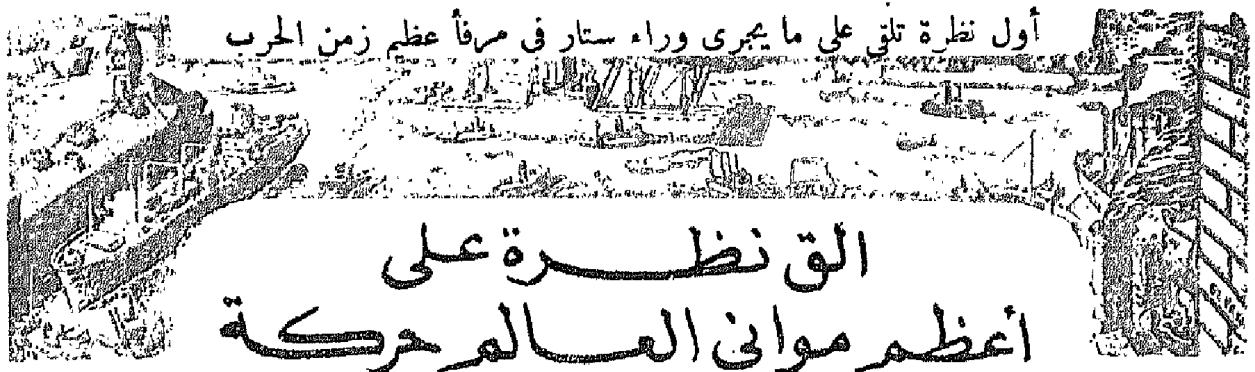 أول نظرة تلقى على ما يجرى وراء ستار فى مرفأ عظيم زمن الحرب
الق نظرة على
أعظم موانى العالم حركة